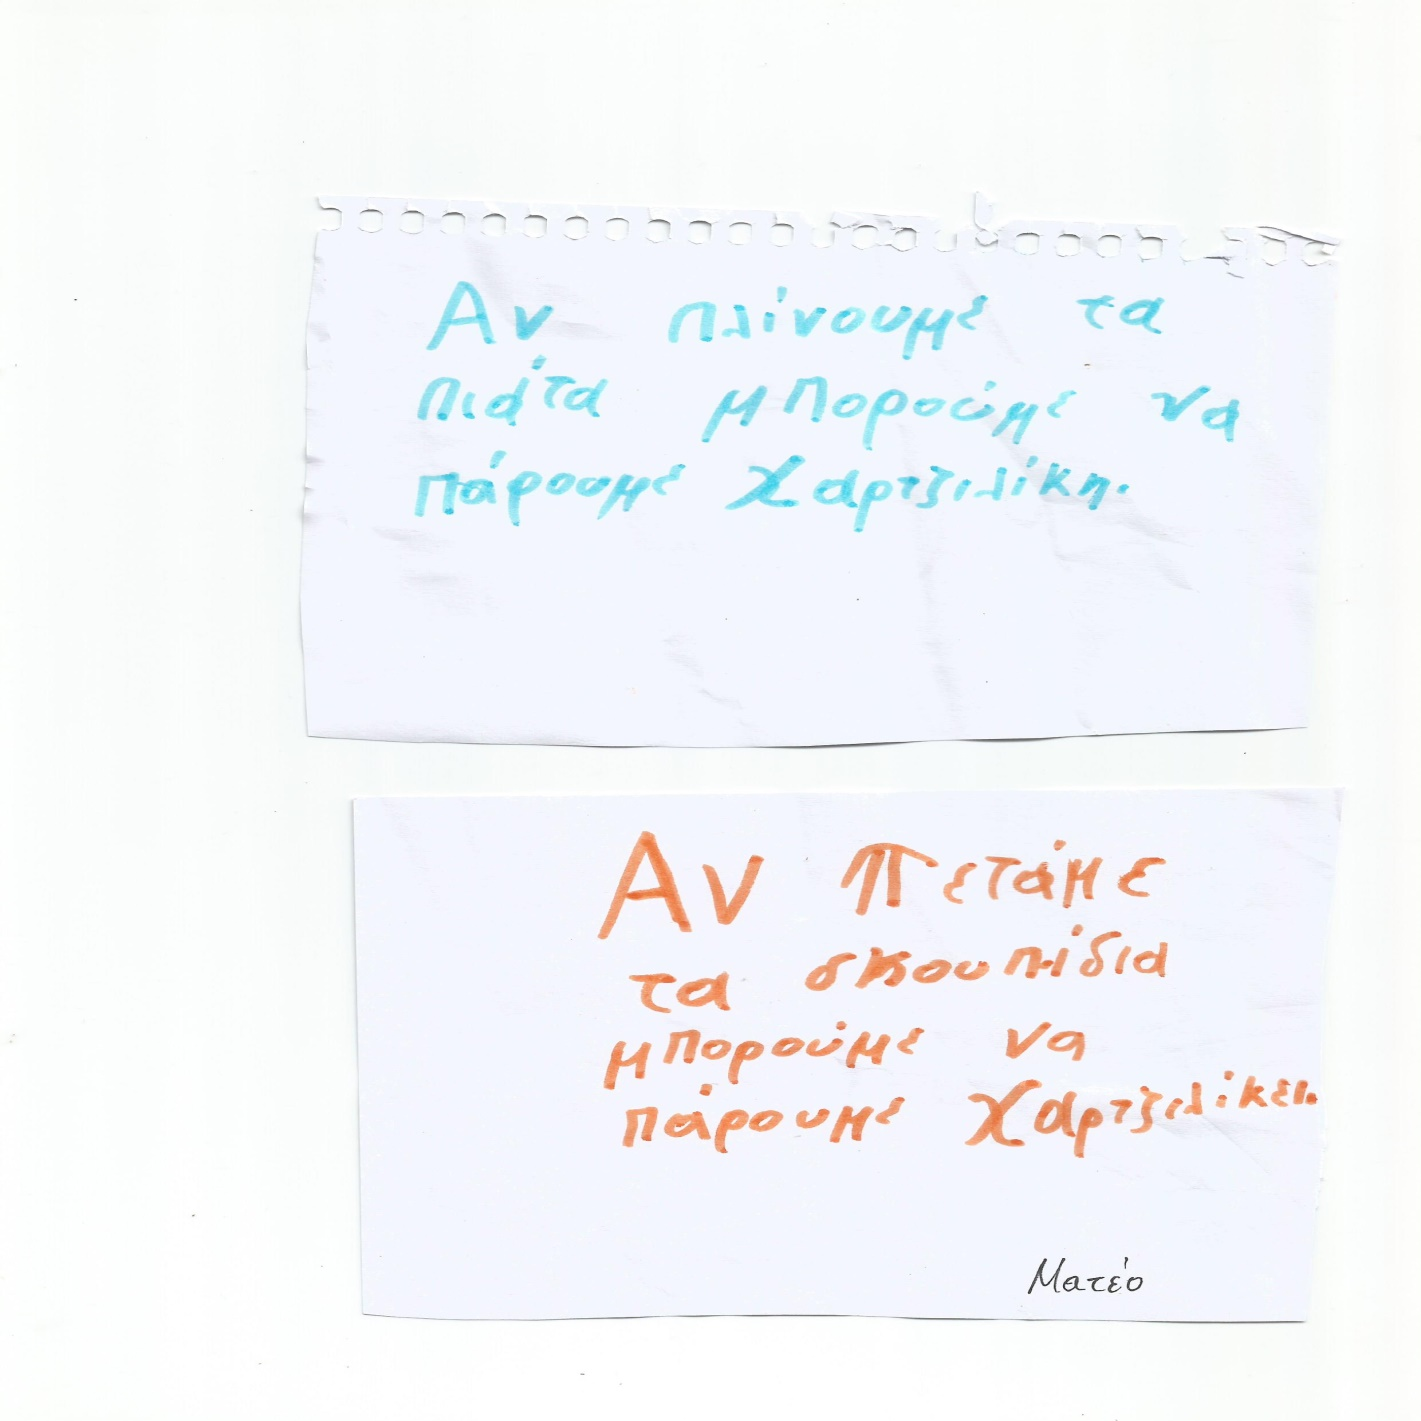 Αν πλίνουμε τα
πιάτα μπορούμε να
πάρουμε χαρτζιλίκη.
Αν πετάμε
τα σκουπίδια
μπορούμε να
πάρουμε χαρτζιλίκει.
Ματέο